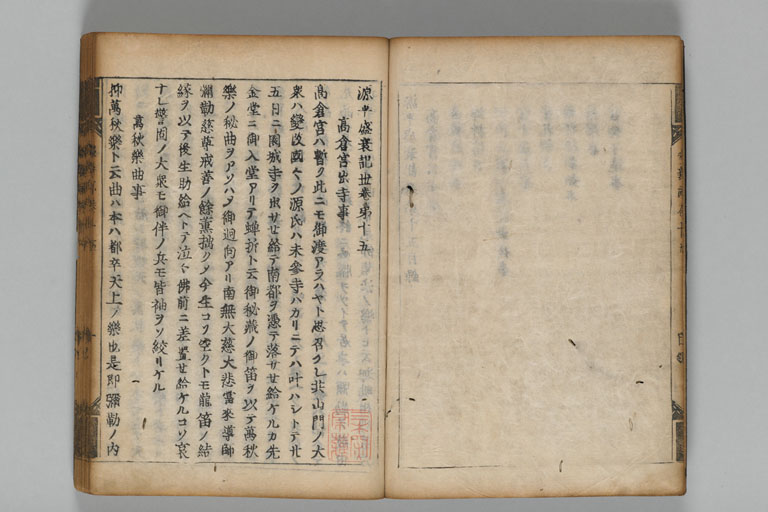 源平盛衰記卅巻第十五
高倉宮出寺事
高倉宮ハ暫ク此ニモ御渡アラハヤト思召ケレ共山門ノ大
衆ハ變改國々ノ源氏ハ未參寺ハカリニテハ叶ハシトテ廿
五日ニ園城寺ヲ出サセ給テ南都ヲ憑テ落サセ給ケルカ先
金堂ニ御入堂アリテ蝉折ト云御秘藏ノ御笛ヲ以テ萬秋
樂ノ秘曲ヲアソハメ御迴向アリ南無大慈大悲當來導師
彌勒慈尊戒善ノ餘薫拙クメ今生コソ空クトモ龍笛ノ結
縁ヲ以テ後生助給ヘトテ泣々佛前ニ差置セ給ケルコソ哀
ナレ警固ノ大衆モ御伴ノ兵モ皆袖ヲソ絞リケル
萬秋樂曲事
抑萬秋樂ト云曲ハ本ハ都卒天上ノ樂也是即彌勒ノ内